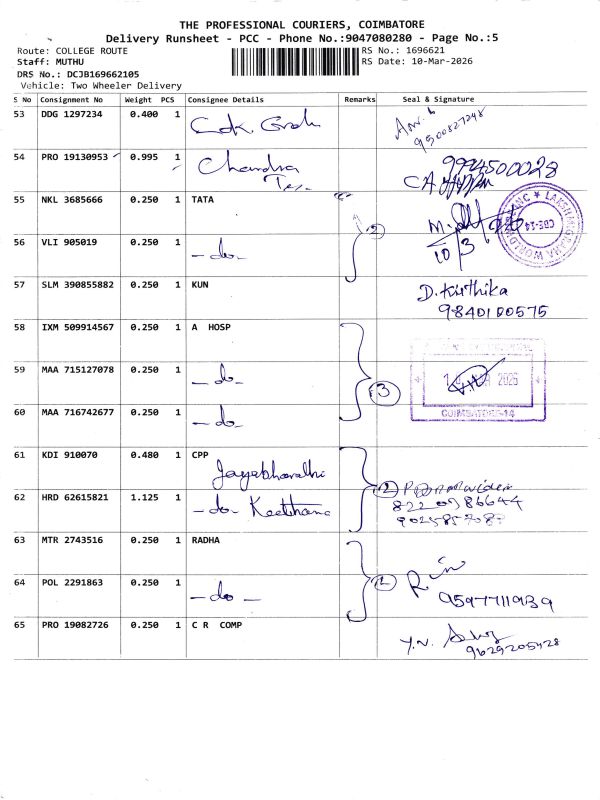 THE PROFESSIONAL COURIERS, COIMBATORE
Delivery Runsheet - PCC - Phone No.:9047080280 - Page No.:5
Route: COLLEGE ROUTE
RS No.: 1696621
Staff: MUTHU
RS Date: 10-Mar-2026
DRS No.: DCJB169662105
Vehicle: Two Wheeler Delivery
S No Consignment No Weight PCS Consignee Details Remarks Seal & Signature
53 DDG 1297234 0.400 1
9500827248
54 PRO 19130953 0.995 1 Chandra
9994500028
55 NKL 3685666 0.250 1 TATA
56 VLI 905019 0.250 1 - do - 2
10/3
CBE-14
57 SLM 390855882 0.250 1 KUN D. Kirthika
9840100575
58 IXM 509914567 0.250 1 A HOSP
59 MAA 715127078 0.250 1 - do - 3
2026
60 MAA 716742677 0.250 1 - do -
COIMBATORE-14
61 KDI 910070 0.480 1 CPP
Jayabharathi
62 HRD 62615821 1.125 1 - do - Keethana 2
8220786644
63 MTR 2743516 0.250 1 RADHA
64 POL 2291863 0.250 1 - do -
9597711939
65 PRO 19082726 0.250 1 C R COMP
9629205428